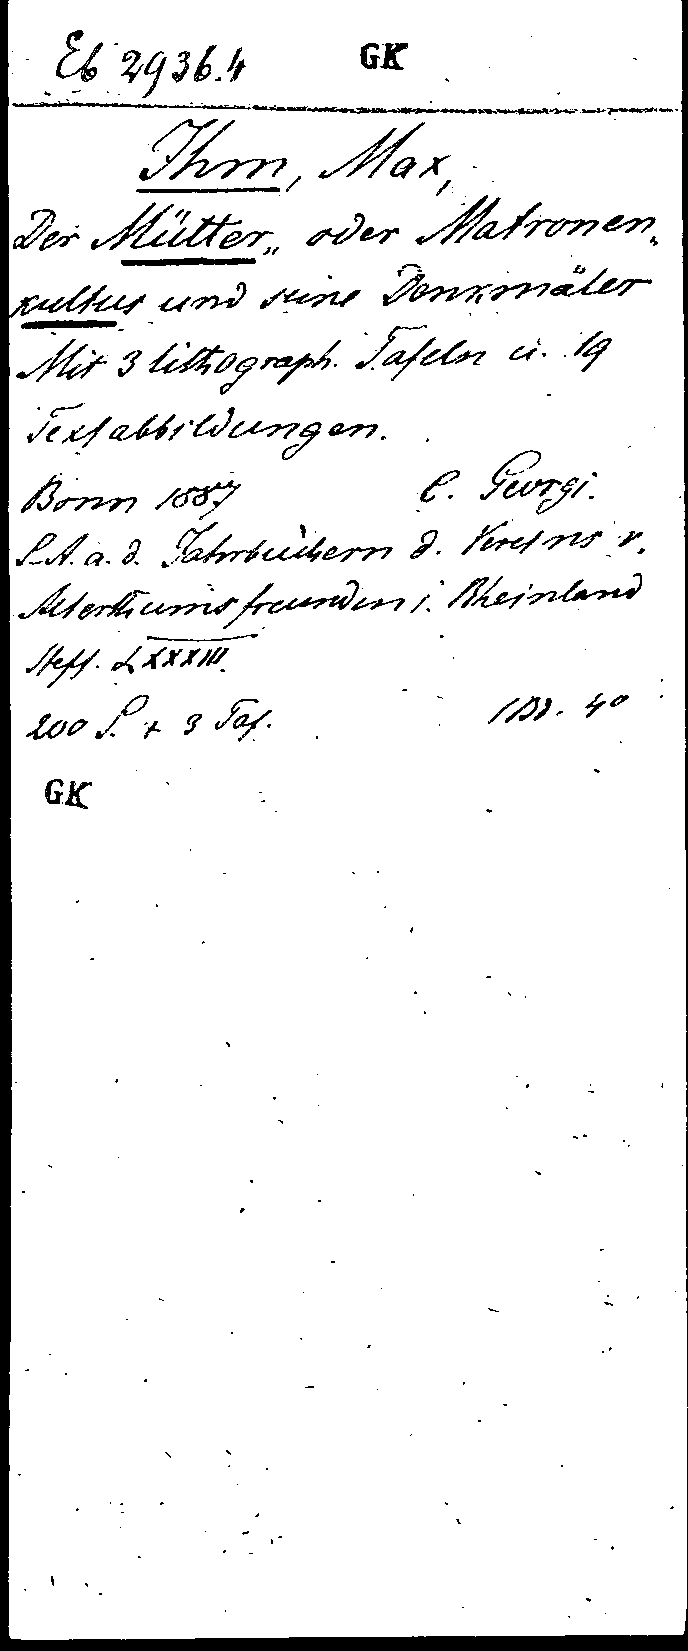 Eb 2936.4 GK
Ihm, Max,
Der Mütter„ oder Matronen„
kultus und seine Denkmäler
Mit 3 lithograph. Tafeln u. 19
Textabbildungen.
Bonn 1887 C. Georgi.
S.A. a. d. Jahrbüchern d. Vereins v.
Alterthumsfreunden i. Rheinland
Heft. LXXXIII.
200 S. + 3 Taf. 1 Bd. 4°
GK